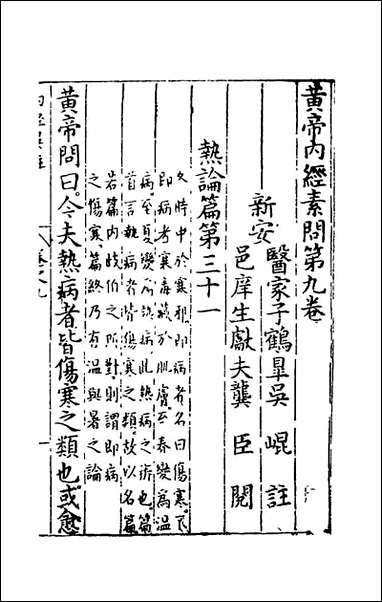 黃帝內經素問第九卷
新安
醫家子鶴皐吳崐註
邑庠生獻夫龔臣閱
熱論篇第三十一
冬時中於寒邪即病者名曰傷寒不
即病者寒毒藏於肌膚至春變為溫
病至夏變為熱病此熱病之所作也篇
首言熱病者皆傷寒之類故以名篇
若篇內岐伯之所對則謂即病
之傷寒篇終乃有溫與暑之論
黃帝問曰今夫熱病者皆傷寒之類也或愈